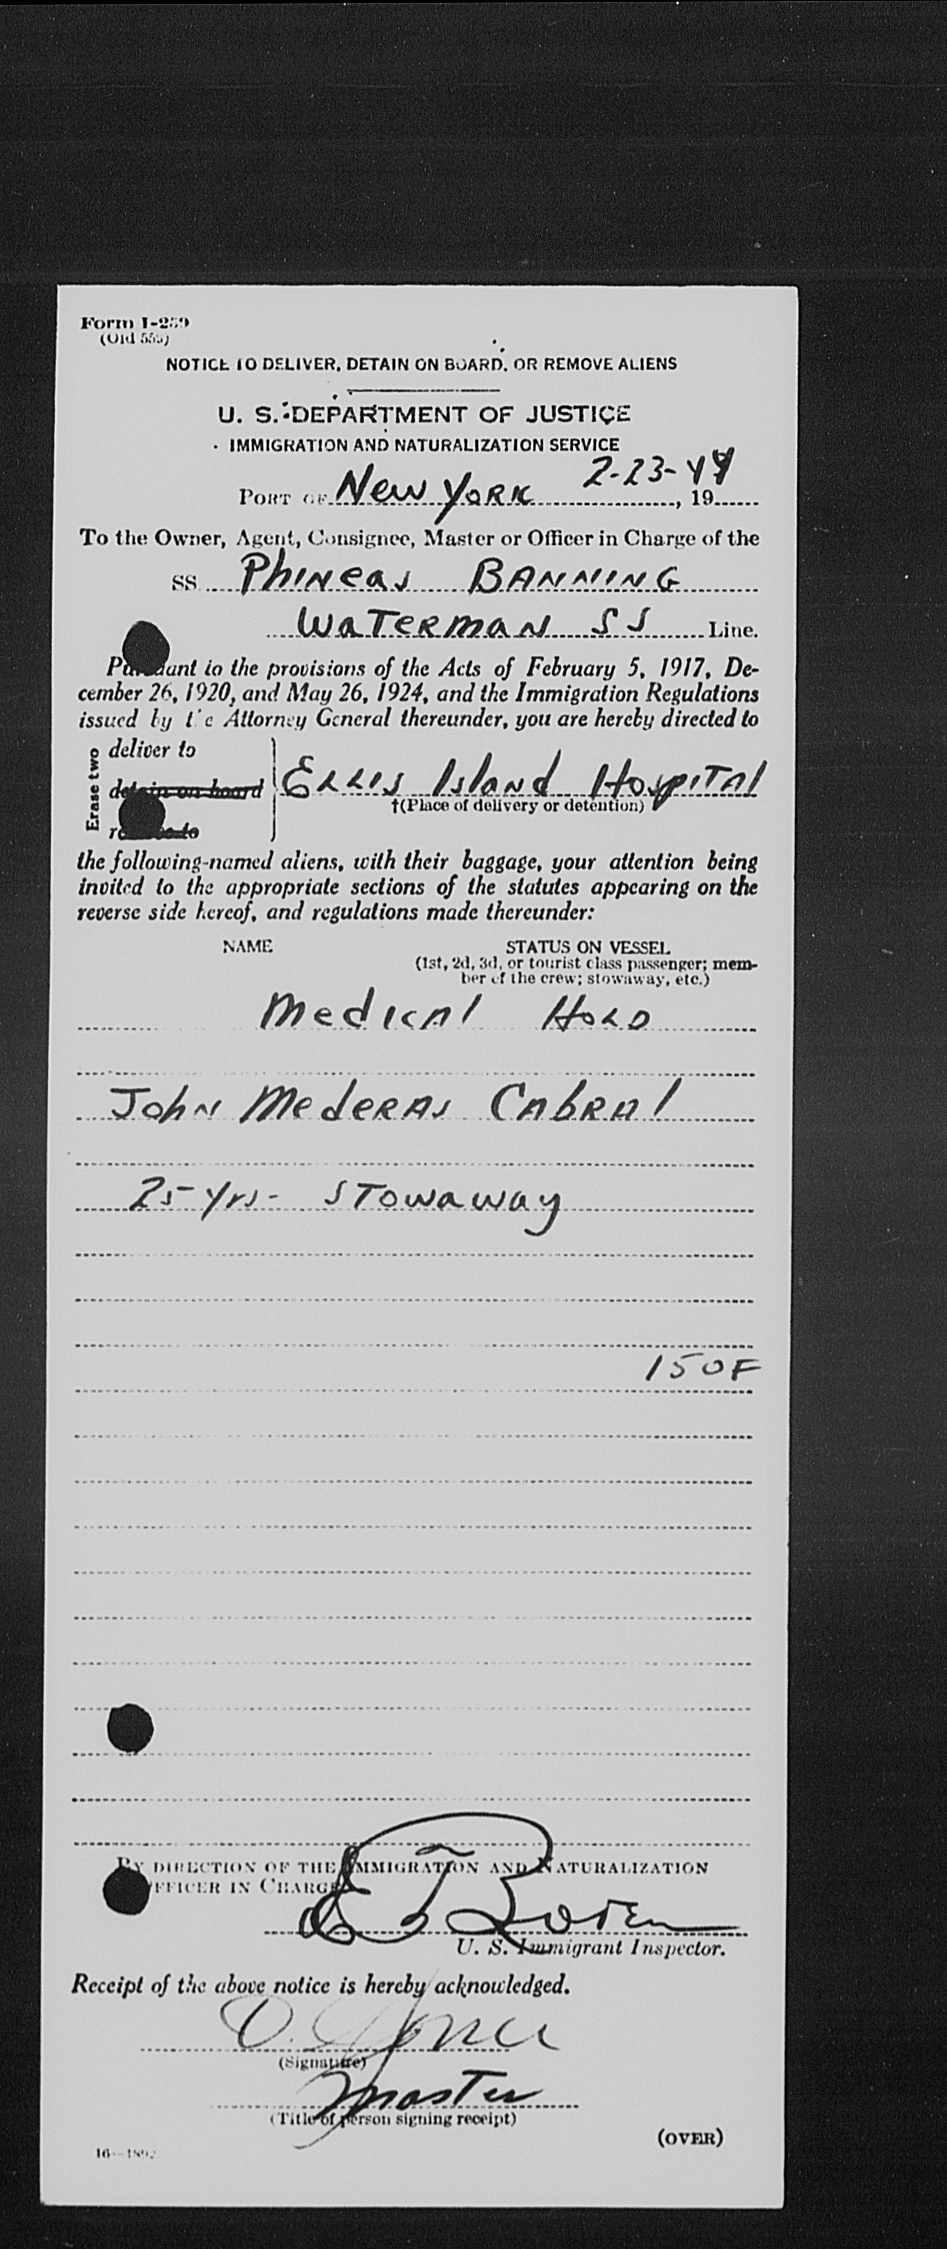 Form I-259
(Old 555)
NOTICE TO DELIVER, DETAIN ON BOARD, OR REMOVE ALIENS
U. S. DEPARTMENT OF JUSTICE
IMMIGRATION AND NATURALIZATION SERVICE
2-23-44
PORT OF New York, 19
To the Owner, Agent, Consignee, Master or Officer in Charge of the
SS Phineas Banning
Waterman SS Line.
Pursuant to the provisions of the Acts of February 5, 1917, De-
cember 26, 1920, and May 26, 1924, and the Immigration Regulations
issued by the Attorney General thereunder, you are hereby directed to
Erase two
deliver to
detain on board Ellis Island Hospital
†(Place of delivery or detention)
remove to
the following-named aliens, with their baggage, your attention being
invited to the appropriate sections of the statutes appearing on the
reverse side hereof, and regulations made thereunder:
NAME STATUS ON VESSEL
(1st, 2d, 3d, or tourist class passenger; mem-
ber of the crew; stowaway, etc.)
Medical Hold
John Mederas Cabral
25-yrs- Stowaway
150F
BY DIRECTION OF THE IMMIGRATION AND NATURALIZATION
OFFICER IN CHARGE
U. S. Immigrant Inspector.
Receipt of the above notice is hereby acknowledged.
O. Jones
(Signature)
Master
(Title of person signing receipt)
(OVER)